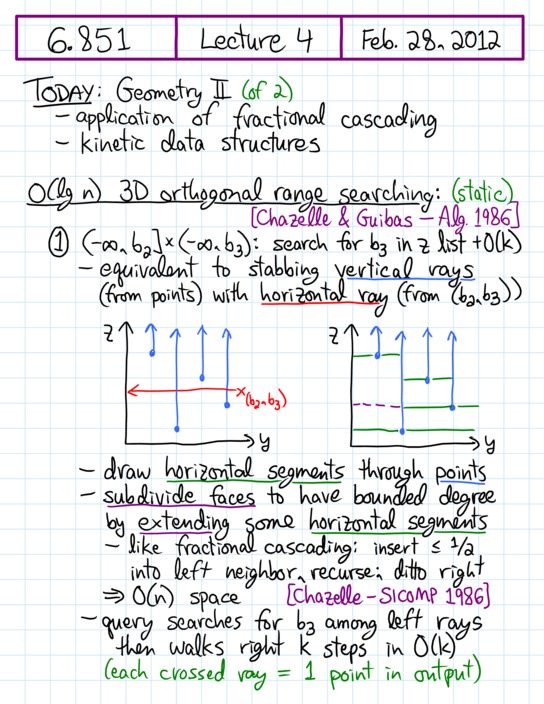 6.851 Lecture 4 Feb. 28, 2012
TODAY: Geometry II (of 2)
- application of fractional cascading
- kinetic data structures
O(lg n) 3D orthogonal range searching: (static)
[Chazelle & Guibas - Alg. 1986]
① (-∞, b₂]×(-∞, b₃): search for b₃ in z list + O(k)
- equivalent to stabbing vertical rays
(from points) with horizontal ray (from (b₂,b₃))
z z
(b₂,b₃)
y y
- draw horizontal segments through points
- subdivide faces to have bounded degree
by extending some horizontal segments
- like fractional cascading: insert ≤ 1/2
into left neighbor, recurse; ditto right
⇒ O(n) space [Chazelle - SICOMP 1986]
- query searches for b₃ among left rays
then walks right k steps in O(k)
(each crossed ray = 1 point in output)